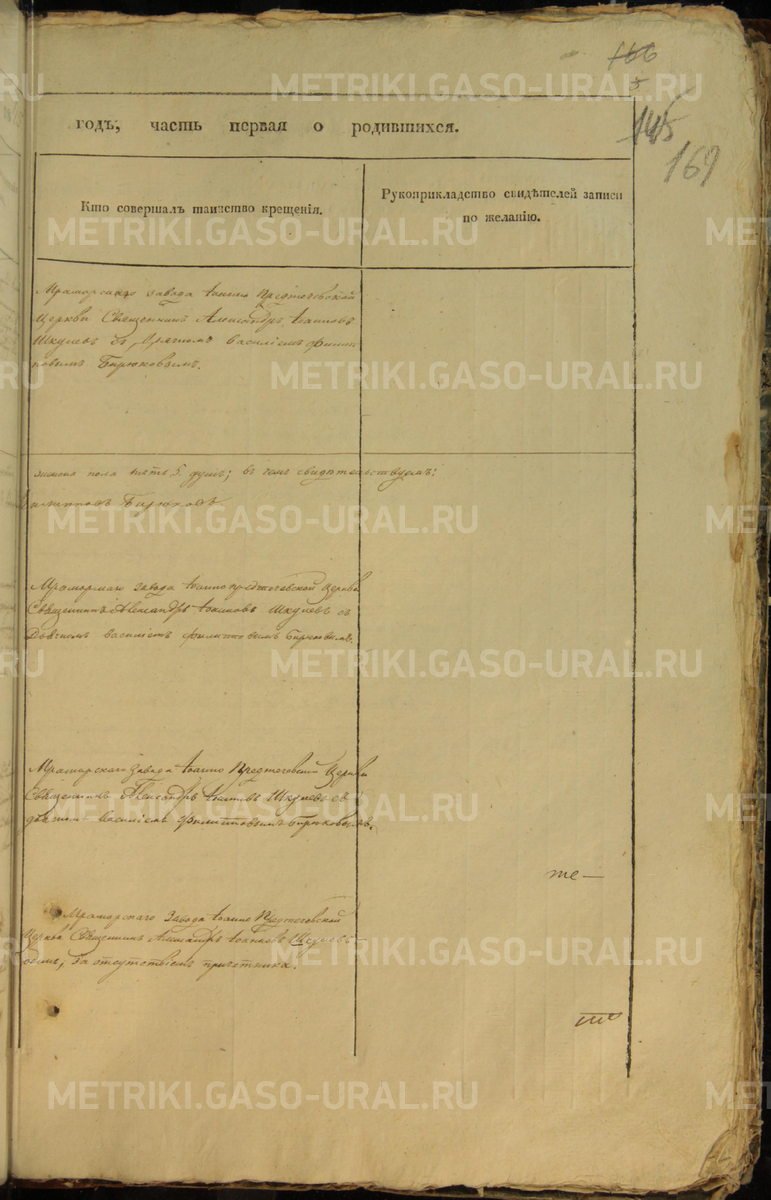 166
5
годъ, часть первая о родившихся.
145
169
Кто совершалъ таинство крещенія.
Рукоприкладство свидѣтелей записи
по желанію.
Мраморскаго завода Іоанно Предтечевской
Церкви Священникъ Александръ Іоанновъ
съ Василіемъ Филип
повымъ Бирюковымъ.
женска пола пять 5. душъ; въ чемъ свидѣтельствуемъ:
Филипповъ Бирюковъ
Мраморскаго завода Іоаннопредтечевской Церкви
Священникъ Александръ Іоанновъ съ
Дьячкомъ Василіемъ Филипповымъ Бирюковымъ.
Мраморскаго завода Іоанно Предтечевской Церкви
Священникъ Александръ Іоанновъ съ
дьячкомъ Василіемъ Филипповымъ Бирюковымъ.
те—
Мраморскаго Завода Іоанно Предтечевской
Церкви Священникъ Александръ Іоанновъ
за отсутствіемъ причетника.
METRIKI.GASO-URAL.RU